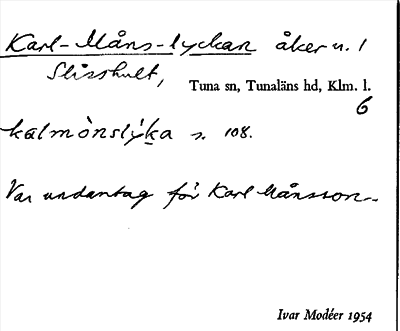 Karl-Måns-lyckan åker n. 1
Slisshult,
Tuna sn, Tunaläns hd, Klm. l.
6
kalmònslýka s. 108.
Var undantag för Karl Månsson.
Ivar Modéer 1954